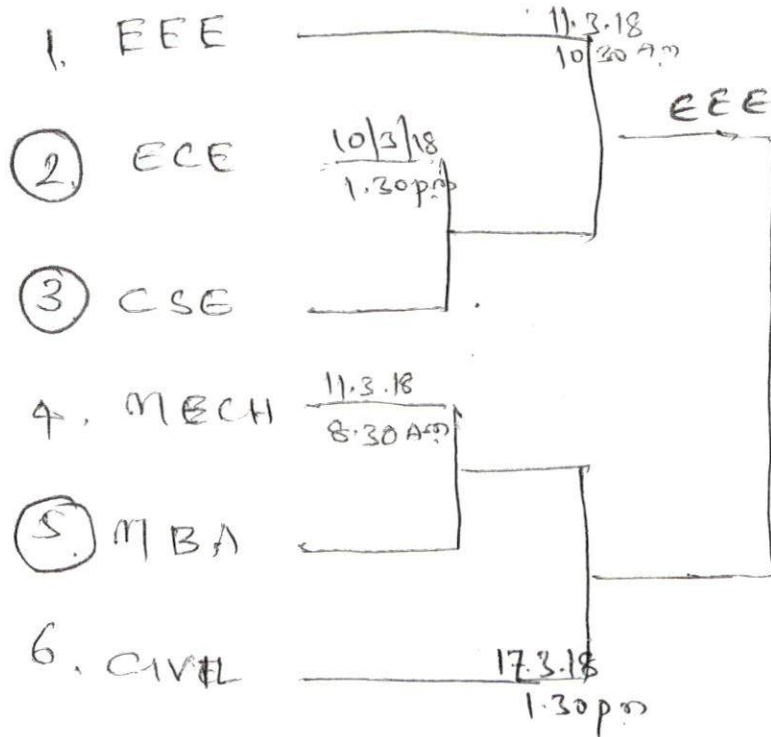 1. EEE
11.3.18
10.30 AM
EEE
2. ECE
10/3/18
1.30pm
3 CSE
4. MECH
11.3.18
8.30 AM
5. MBA
6. CIVIL
17.3.18
1.30pm